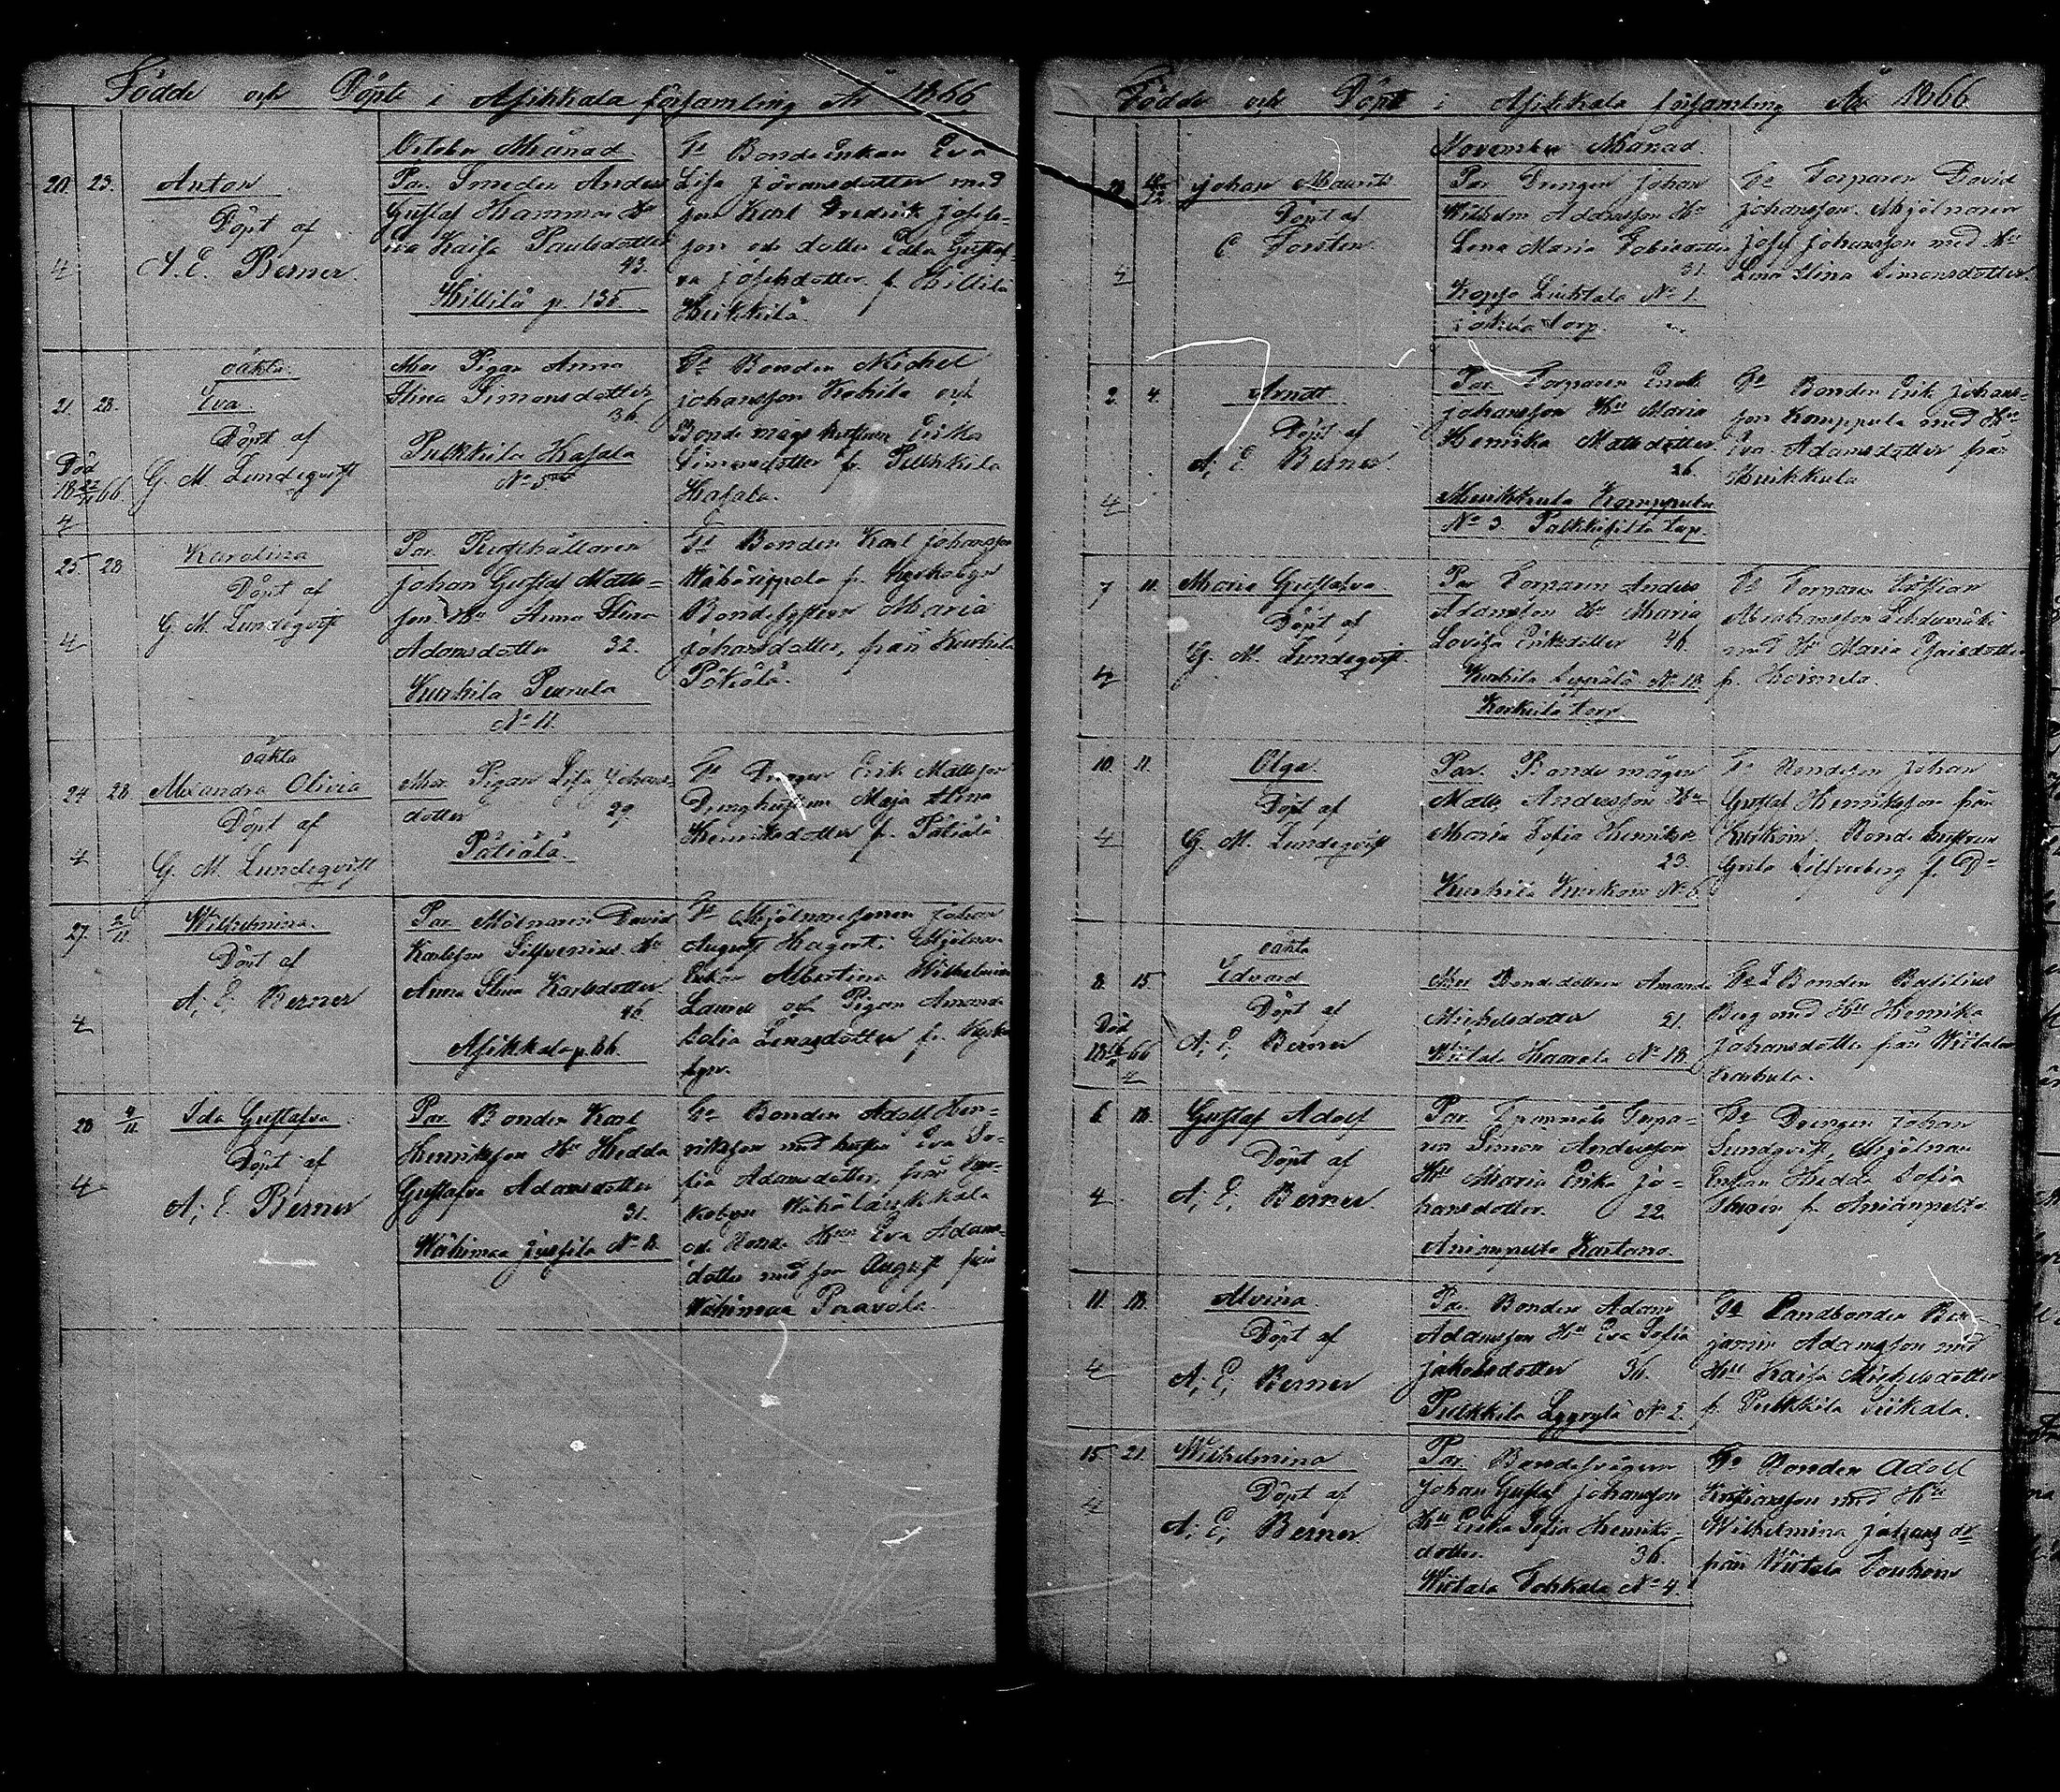 Födde och Döpte i Asikkala församling År 1866
October Månad
20. 23. Anton
Döpt af
A. E. Berner
4
Par. Smeden Anders
Gustaf Hammar Hu
Eva Kaisa Paulsdotter
43.
Hillilä p. 135
Fs Bondeenkan Eva
Lisa Göransdotter med
son Karl Fredrik Josefs-
son och dotter Edla Gustaf-
va Josefsdotter fr. Hillilä
Heikkilä.
oäkta
21. 28. Eva
Döpt af
G. M. Lundeqvist
Död
18 22/11 66.
4
Mor Pigan Anna
Stina Simonsdotter
36.
Pulkkila Hasala
No 5
Fs Bonden Michel
Johansson Kokila och
Bonde mågs hustrun Erika
Simonsdotter fr. Pulkkila
Hasala.
25. 28 Karolina
Döpt af
G. M. Lundeqvist
4
Par.
Johan Gustaf Matts-
son Hu Anna Stina
Adamsdotter 32.
Kurhila Punula
No 11.
Fs Bonden Karl Johansson
Wähätippala fr.
Bondesystern Maria
Johansdotter, från Kurhila
Pätiälä.
oäkta
24 28 Alexandra Olivia
Döpt af
G. M. Lundeqvist
4
Mor. Pigan Lisa Johans-
dotter 29.
Pätiälä
Fs Drengen Erik Mattsson
Drenghustrun Maja Stina
Henriksdotter fr. Pätiälä
27. 2/11. Wilhelmina.
Döpt af
A; E; Berner
4
Par Mölnaren David
Karlsson Silfvenius. Hu
Anna Stina Karlsdotter
46.
Asikkala p. 66.
Fs Mjölnaresonen Johan
August Hagert. Mjölnare
Enkan Albertina Wilhelmina
Laurell och Pigan Amanda
Sofia Lenasdotter fr. Kyrko
byn.
28 4/11. Ida Gustafva
Döpt af
A; E Berner
4
Par Bonden Karl
Henriksson Hu Hedda
Gustafva Adamsdotter
31.
Wähimaa Jussila No 8.
Fs Bonden Adolf Hen-
riksson med hustru Eva So-
fia Adamsdotter, från Kyr-
kobyn Wähälaukkala
och Bonde Hun Eva Adams-
dotter med son August från
Wähimaa Peravola.
Födde och Döpte i Asikkala församling År 1866
November Månad.
Johan Maurits
Döpt af
C Forstén
4
Par Drengen Johan
Wilhelm Adamsson Hu
Lena Maria Tobiasdotter
31.
No 1.
torp.
Fs Torparen David
Johansson. Mjölnaren
Josef Johansson med Hu
Lena Stina Simonsdotter.
2. 4. Arndt
Döpt af
A; E Berner.
4
Par. Torparen Enok
Johansson Hu Maria
Henrika Mattsdotter
26.
Muikkula Komppula
No 3. Palkkisilta torp.
Fs Bonden Erik Johans-
son Komppula med Hu
Eva Adamsdotter från
Muikkula
7 11. Maria Gustafva
Döpt af
G. M. Lundeqvist.
4
Par Torparen Anders
Adamsson Hu Maria
Lovisa Eriksdotter 46.
Kurhila No 18.
Korkeila torp.
Fs Torparen
Lehdesmäki
med Hu Maria Esaisdotter
fr. Hoimela.
10. 11. Olga
Döpt af
G. M. Lundeqvist
4
Par. Bonde mågen
Matts Andersson Hu
Maria Sofia Henriksd
23.
Kurhila Knickom No 6.
Fs Bondeson Johan
Gustaf Henriksson från
Bonde hustrun
Greta Silfverberg fr. Do
oäkta
8. 15. Edvard
Döpt af
A; E; Berner
Död
18 16/11 66
4
Mor Bondedottren Amanda
Michelsdotter 21.
Wiitala Haarala No 18.
Fs Bonden Basilius
Berg med Hu Henrika
Johansdotter från Wiitala
Karkula.
6 18. Gustaf Adolf
Döpt af
A; E; Berner.
4
Par. Frammets Torpa-
ren Simon Andersson
Hu Maria Erika Jo-
hansdotter. 22.
Anianpelto Kartano.
Fs Drengen Johan
Lundqvist, Mjölnare
Enkan Hedda Sofia
fr. Anianpelto.
11. 18. Alvina
Döpt af
A; E; Berner
4
Par Bonden Adam
Adamsson Hu Eva Sofia
Jakobsdotter 36.
Pulkkila Yygrylä No 2.
Fs Landbonden Ben-
jamin Adamsson med
Hu Kaisa Michelsdotter
fr. Pulkkila Eerikala.
15 21. Wilhelmina
Döpt af
A; E; Berner.
4
Par. Bondesvågern
Johan Gustaf Johansson
Hu Erika Sofia Henriks-
dotter. 36.
Wiitala Tokkala No 4.
Fs Bonden Adolf
Kristiansson med Hu
Wilhelmina Johans dr
från Wiitala Bouhom